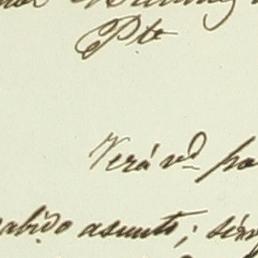 Pte
Verá vd pa
sabido asunto; sírv